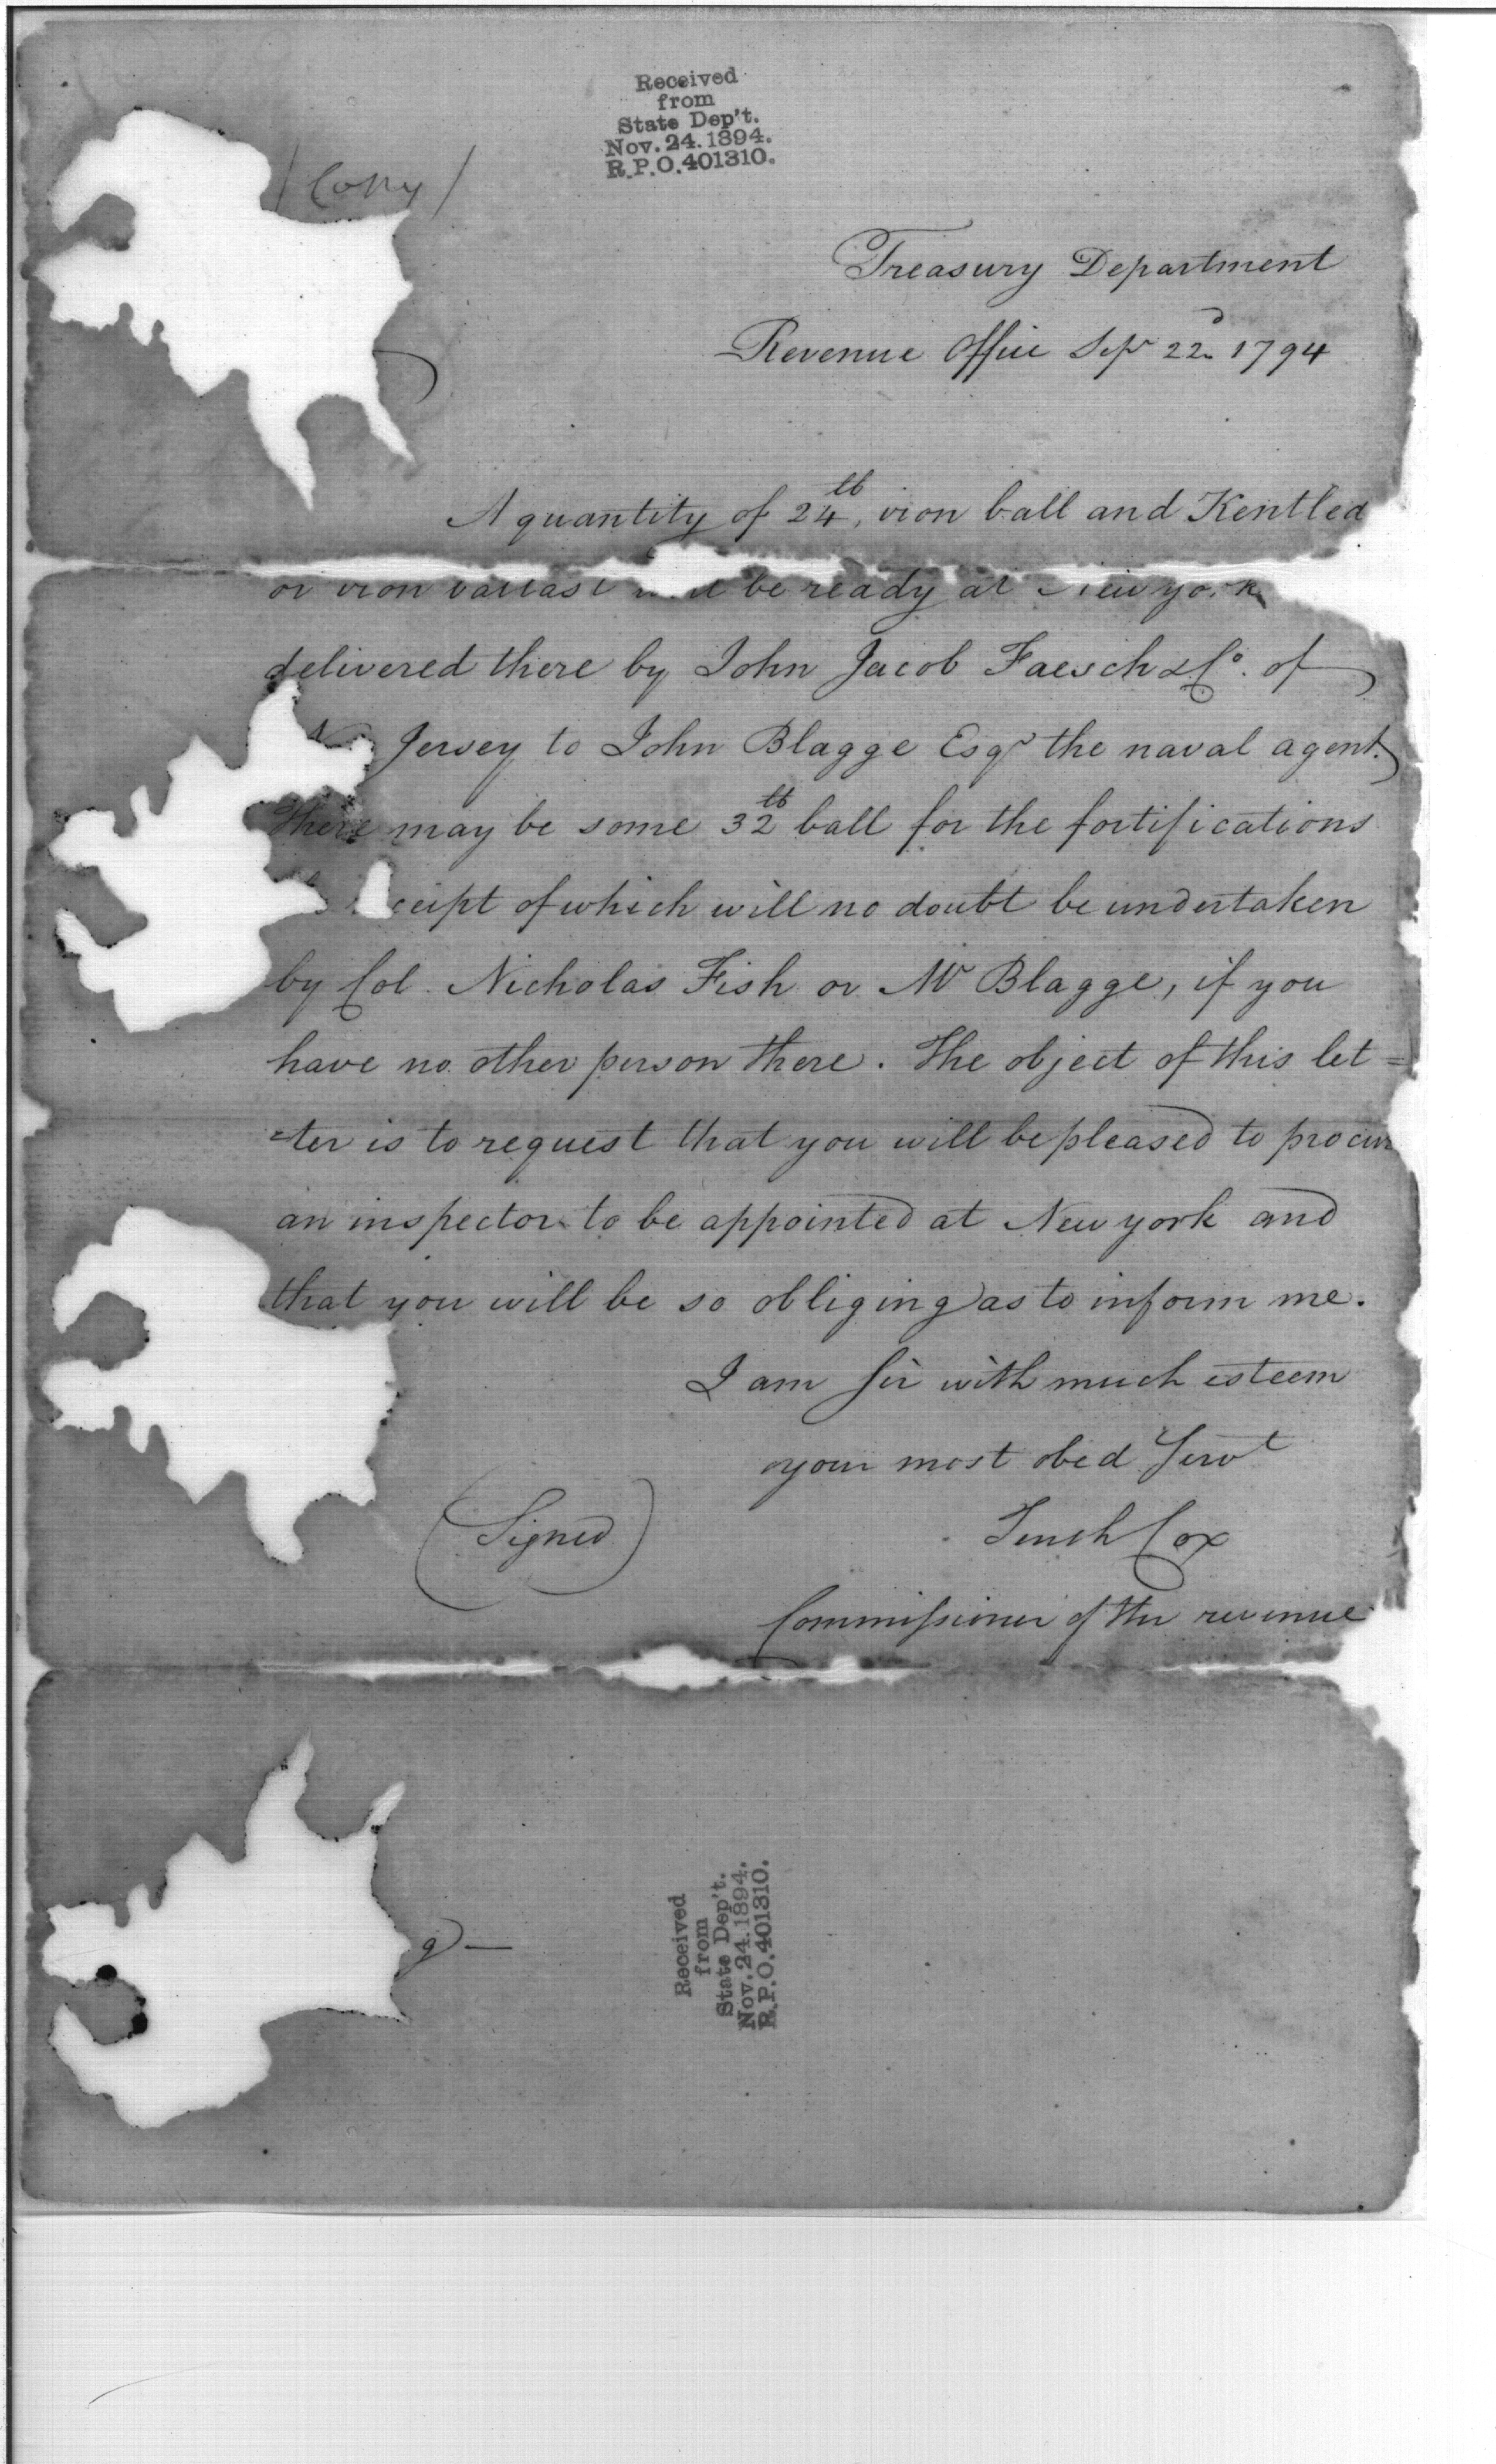 Received
from
State Dep't.
Nov. 24. 1894.
R.P.O. 401310.
/Copy/
Treasury Department
Revenue Office Sepr 22d 1794
A quantity of 24 lb, iron ball and Kentled
or iron ballast be ready at New york
delivered there by John Jacob Faesch & Co. of
Jersey to John Blagge Esqr the naval agent.
There may be some 32 lb ball for the fortifications
ceipt of which will no doubt be undertaken
by Col. Nicholas Fish or Mr Blagge, if you
have no other person there. The object of this let=
=ter is to request that you will be pleased to procur
an inspector to be appointed at New york and
that you will be so obliging as to inform me.
I am Sir with much esteem
your most obed Servt
(Signed) Tench Cox
Commissioner of the revenue
Received
from
State Dep't.
Nov. 24. 1894.
R.P.O. 401310.